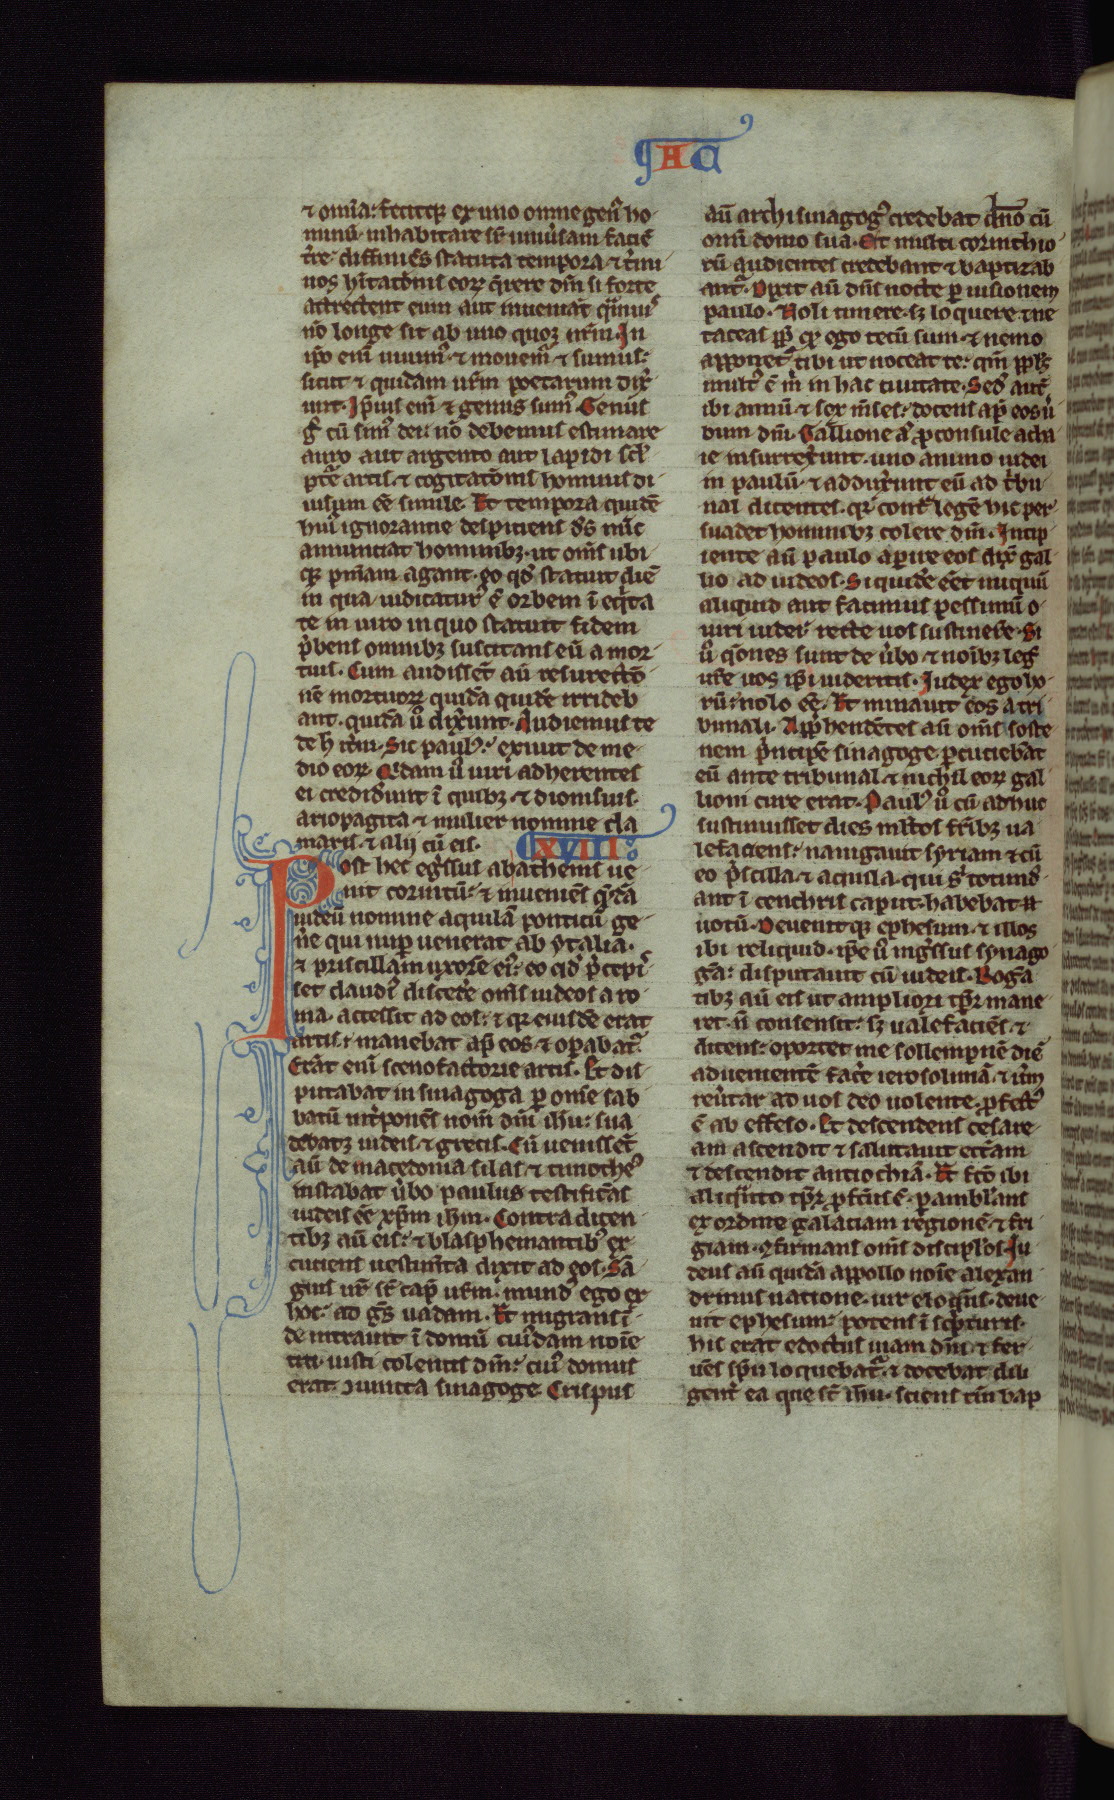 AC
⁊ om̅ia: fecitq; ex uno om̅ne gen̅ ho-
minu̅ inhabitare sr̅ uniu̅sam facie̅
t̅re. diffinie̅s statuta tempora ⁊ t̅mi
nos h̅itat̅onis eoꝝ q̅rere dm̅ si forte
attrectent eum aut inueniat̅ q̅muis
no̅ longe sit ab uno quoq; nr̅m. In
ip̅o eni̅ uiuim̅ ⁊ mouem̅ ⁊ sumus:
sicut ⁊ quidam ur̅m poetarum dix̅
unt. Ip̅ius eni̅ ⁊ genus sum̅. Genus
g̅ cu̅ sim̅ dei: no̅ debemus estimare
auro aut argento aut lapidi scl̅
pt̅e artis. ⁊ cogitat̅onis hominis di
uinum e̅e simile. Et tempora quide̅
hui̅ ignorantie despiciens ds̅ nu̅c
annunciat hominib;. ut om̅s ubi
q; pn̅iam agant. eo qd̅ statuit die̅
in qua iudicatur̅ e̅ orbem i̅ eq̅ta
te in uiro in quo statuit fidem
p̅bens omnib; suscitans eu̅ a mor
tuis. Cum audisse̅t au̅ resurrect̅o
ne̅ mortuoꝝ quida̅ quide̅ irrideb
ant. quida̅ u̅ dix̅unt. Audiemus te
de h̅ it̅m. Sic paul̅: exiuit de me-
dio eoꝝ. Q̅dam u̅ uiri adherentes
ei crediderunt i̅ quib; ⁊ dionisius.
ariopagita ⁊ mulier nomine da
maris. ⁊ alij cu̅ eis.
XVIII
Post hec eg̅ssus ab athenis ue
nit corintu̅: ⁊ inuenie̅s q̅da̅
iudeu̅ nomine aquila̅ ponticu̅ ge-
n̅e qui nup̅ uenerat ab ytalia.
⁊ priscillam uxore̅ ei̅. eo qd̅ p̅cepis
set claudi̅ discede̅ om̅s iudeos a ro
ma. accessit ad eos: ⁊ q̅ eiusde̅ erat
artis. manebat ap̅ eos ⁊ op̅abat̅.
Erat eni̅ scenofactorie artis. Et dis
putabat in sinagoga p̅ om̅e sab
batu̅ int̅pone̅s nom̅ dn̅i ihu̅: sua
debatq; iudeis. ⁊ grecis. Cu̅ uenisse̅t
au̅ de macedonia silas ⁊ timothe̅
instabat u̅bo paulus testifica̅s
iudeis e̅e xp̅m ih̅m. Contra dicen
tib; au̅ eis: ⁊ blasphemantib; ex
cutiens uestim̅ta dixit ad eos. Sa̅
guis ur̅ sr̅ cap̅ ur̅m. mund̅ ego ex
hoc. ad ge̅s uadam. Et migrans i̅
de intrauit i̅ domu̅ cuidam no̅ie
titi. iusti colentis dm̅: cui̅ domus
erat ꝯiuncta sinagoge. Crispus
au̅ archisinagog̅ credebat dn̅o cu̅
om̅i domo sua. Et multi corinthio
ru̅ audientes credebant ⁊ baptizab
ant̅. Dixit au̅ dn̅s nocte p̅ uisionem
paulo. Noli timere. s; loquere ⁊ ne
taceas pp̅ q̅ ego tecu̅ sum. ⁊ nemo
apponet̅ tibi ut noceat te: qm̅ ppl̅s
mult̅ e̅ m̅ in hac ciuitate. Sed̅ aut̅
ibi annu̅ ⁊ sex m̅ses: docens ap̅ eos u̅
bum dn̅i. Gallione a̅ proconsule acha
ie insurrex̅unt. uno animo iudei
in paulu̅. ⁊ addux̅unt eu̅ ad t̅bu
nal dicentes. q̅ cont̅ lege̅ hic per
suadet hominib; colere dm̅. Incip
iente au̅ paulo aperire eos dix̅ gal
lio ad iudeos. Si quide̅ e̅et iniquu̅
aliquid aut facinus pessimu̅ o
uiri iudei recte uos sustinere̅. Si
u̅ q̅ones sunt de u̅bo ⁊ no̅ib; leg̅
ur̅e uos ip̅i uideritis. Iudex ego ho
ru̅: nolo e̅e. Et minauit eos a tri
bunali. Appr̅hende̅tes au̅ om̅s soste
nem p̅ncipe̅ sinagoge p̅cutieba̅t
eu̅ ante tribunal. ⁊ nichil eoꝝ gal
lioni cure erat. Paul̅ u̅ cu̅ adhuc
sustinuisset dies ml̅tos fr̅ib; ua
lefaciens: nauigauit syriam ⁊ cu̅
eo p̅scilla ⁊ aquila. qui s̅ totond̅
ant i̅ cenchris caput. habebat
uotu̅. Deuenitq; ephesum. ⁊ illos
ibi reliquid. ip̅e u̅ ing̅ssus synago
ga̅: disputauit cu̅ iudeis. Roga̅
tib; au̅ eis ut ampliori tp̅r mane
ret. n̅ consensit: s; ualefacie̅s. ⁊
dicens: oportet me sollempne̅ die̅
adueniente̅ fac̅e ierosolima̅. ⁊ it̅m
reu̅tar ad uos deo uolente. p̅fect̅
e̅ ab effeso. Et descendens cesare-
am ascendit ⁊ salutauit ecc̅am
⁊ descendit antiochia̅. Et fc̅o ibi
aliq̅nto tp̅r p̅fc̅us e̅. p̅ambl̅ans
ex ordine galatiam regione̅ ⁊ fri
giam. ꝯfirmans om̅s discipl̅os. Iu
deus au̅ quida̅ appollo no̅ie alexan
drinus natione. uir eloq̅ns. deue
nit ephesum: potens i̅ sc̅pturis.
hic erat edoctus uiam dn̅i. ⁊ fer
ue̅s spu̅ loquebat̅. ⁊ docebat dili
gent̅ ea que sr̅ ihu̅. sciens tm̅ bap